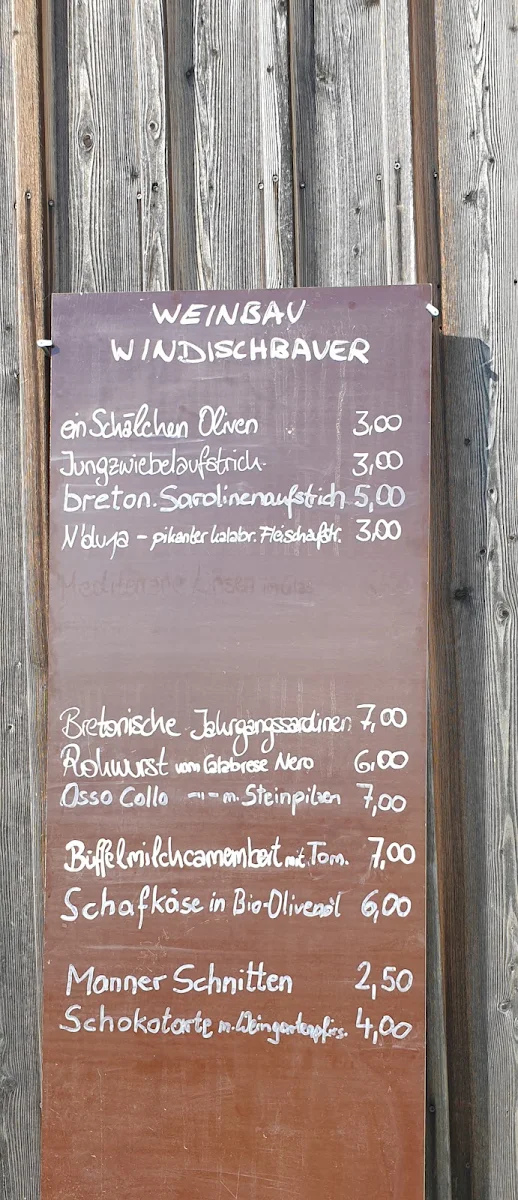 WEINBAU
WINDISCHBAUER
ein Schälchen Oliven 3,00
Jungzwiebelaufstrich 3,00
breton. Sardinenaufstrich 5,00
N'duja - pikanter kalabr. Fleischafstr. 3,00
Bretonische Jahrgangssardinen 7,00
Rohwurst vom Calabrese Nero 6,00
Osso Collo -"- m. Steinpilzen 7,00
Büffelmilchcamembert mit Tom. 7,00
Schafkäse in Bio-Olivenöl 6,00
Manner Schnitten 2,50
Schokotorte m. Weingartenpfirs. 4,00